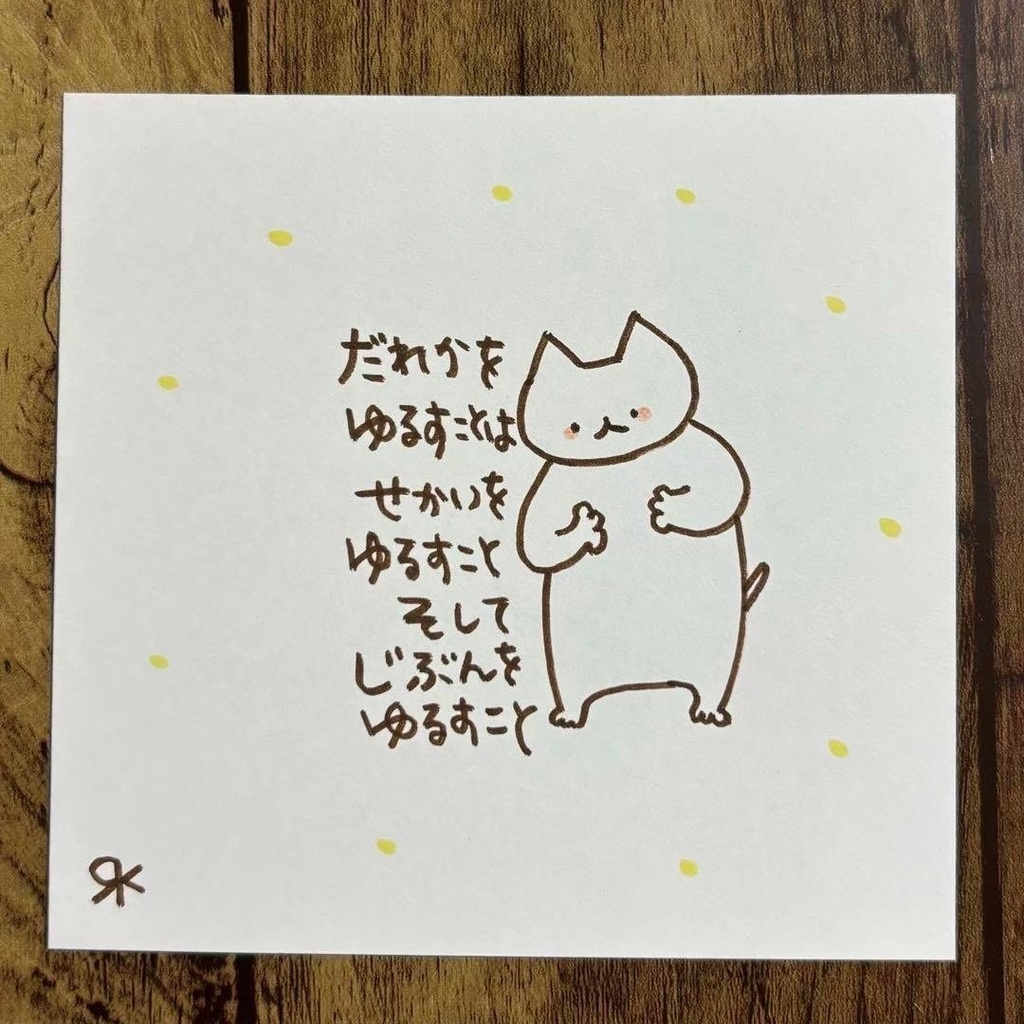 だれかを
ゆるすことは
せかいを
ゆるすこと
そして
じぶんを
ゆるすこと
RK